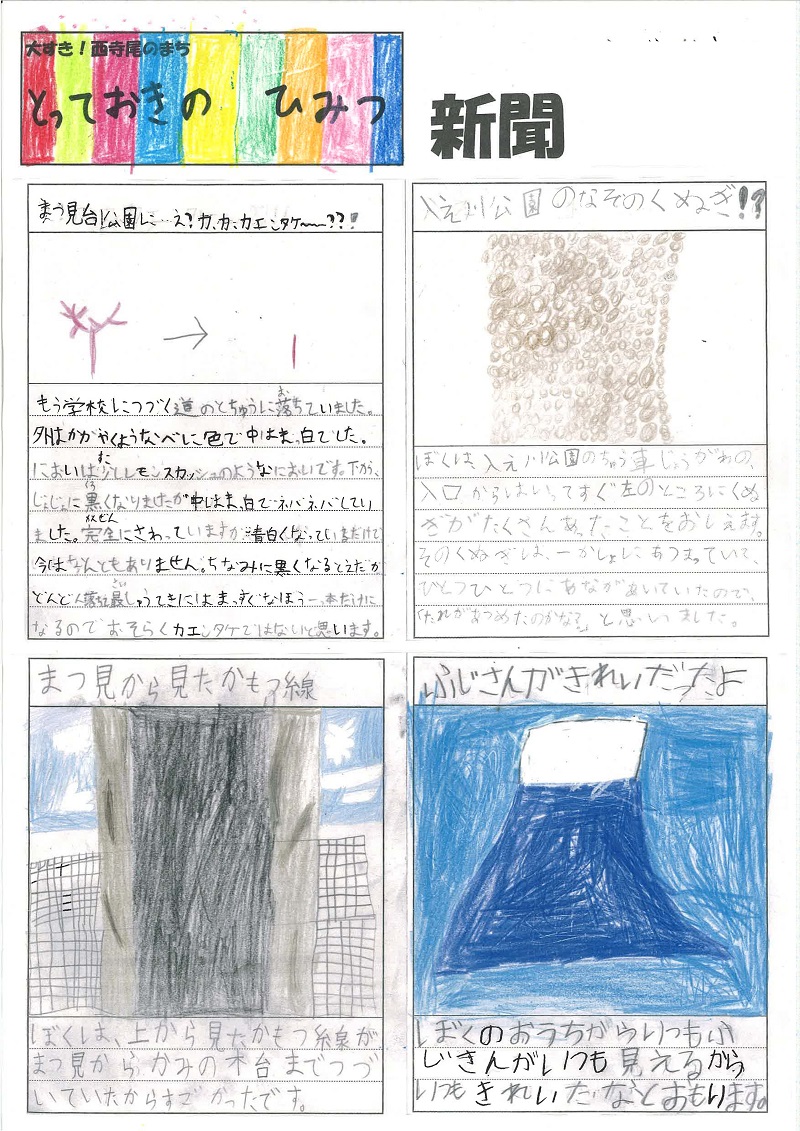 大すき！西寺尾のまち
とっておきの ひみつ
新聞
まつ見台公園に…え？カ、カ、カエンタケ〜〜??!
もう学校につづく道のとちゅうに落ちていました。
外はかがやくようなべに色で中はまっ白でした。
においは少しレモンスカッシュのようなにおいです。下から、
じょじょに黒くなりましたが中はまっ白でネバネバしてい
ました。完全にさわっていますが青白くなっているだけで
今はなんともありません。ちなみに黒くなるとえだが
どんどん落ち最しゅうてきにはまっすぐなぼう一本だけに
なるのでおそらくカエンタケではないと思います。
入え川公園のなぞのくぬぎ!?
ぼくは、入え川公園のちゅう車じょうがわの、
入口からはいってすぐ左のところにくぬ
ぎがたくさんあったことをおしえます。
そのくぬぎは、一かしょにあつまっていて、
ひとつひとつにあながあいていたので、
「だれがあつめたのかな？」と思いました。
まつ見から見たかもつ線
ぼくは、上から見たかもつ線が
まつ見から、かみの木台までつづ
いていたからすごかったです。
ふじさんがきれいだったよ
ぼくのおうちからいつもふ
じさんがいつも見えるから
いつもきれいだなとおもります。